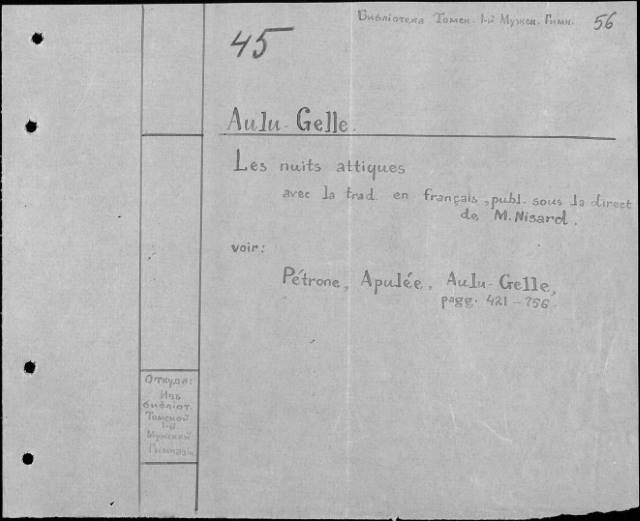 Библіотека Томск. 1-й Мужск. Гимн. 56
45
Aulu-Gelle.
Les nuits attiques
avec la trad. en français, publ. sous la direct
de M. Nisard.
voir:
Pétrone, Apulée, Aulu-Gelle,
pagg. 421-756.
Откуда:
Изъ
библіот.
Томской
1-й
Мужской
Гимназіи